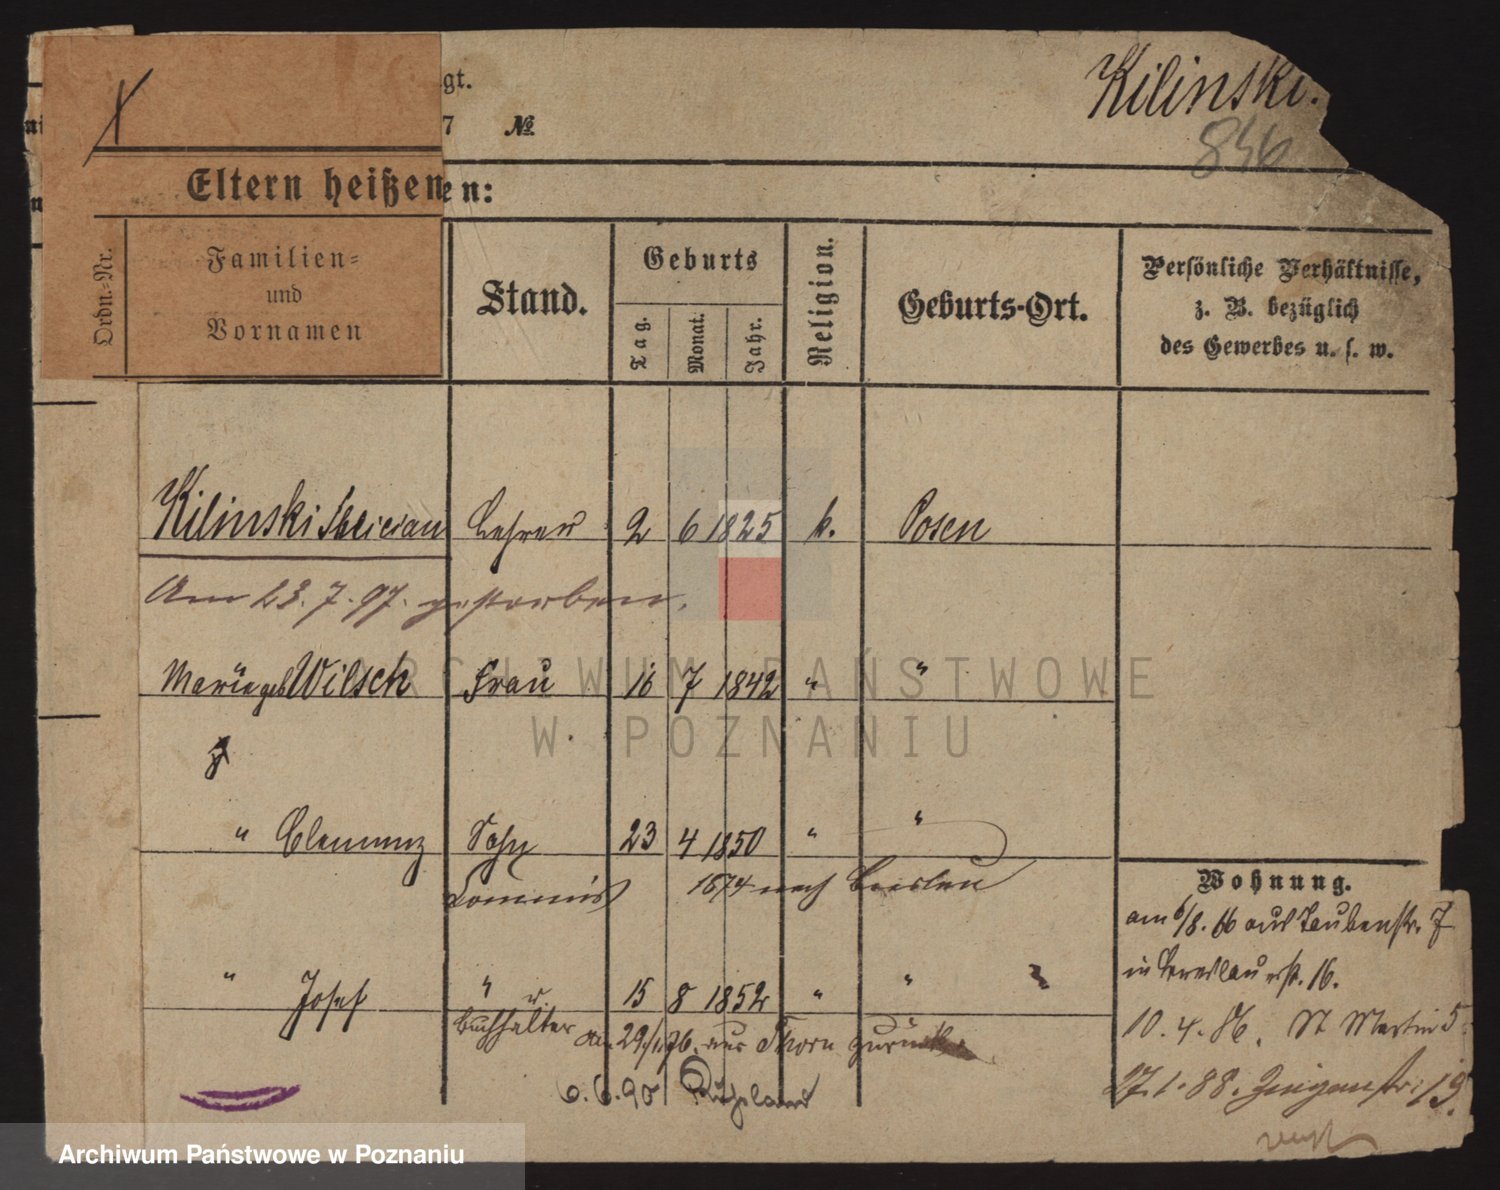 gt.
Kilinski.
7 №
846
Eltern heißen
en:
Ordn.-Nr.
Familien-
und
Vornamen
Stand.
Geburts
Tag.
Monat.
Jahr.
Religion.
Geburts-Ort.
Persönliche Verhältnisse,
z. B. bezüglich
des Gewerbes u. s. w.
Kilinski Lehrer 2 6 1825 k. Posen
Am 23. 7. 97. gestorben.
Marie geb Wilsch Frau 16 7 1842 " "
ARCHIWUM PAŃSTWOWE
W POZNANIU
" Clemenz Sohn 23 4 1850 " "
Commis 1874 nach Breslau
Wohnung.
am 6/8. 66 aus Taubenstr. 7
in Breslauerst. 16.
" Josef " 15 8 1852 " "
Buchhalter 29/1.76. aus Thorn zurück
10. 4. 86. St Martin 5
6. 6. 90 Rußland
27. 1. 88. 19.
Archiwum Państwowe w Poznaniu